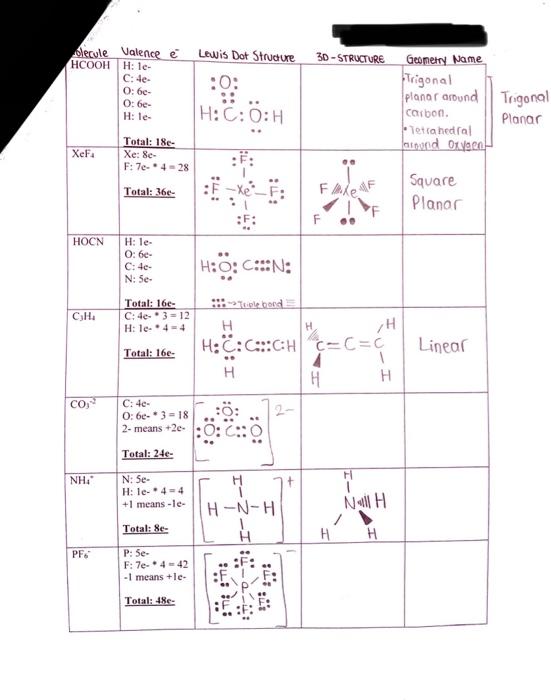 Molecule Valence e⁻ Lewis Dot Structure 3D-STRUCTURE Geometry Name
HCOOH
H: 1e-
C: 4e-
O: 6e-
O: 6e-
H: 1e-
Total: 18e-
:O:
H:C:O:H
•Trigonal
planar around
carbon.
•Tetrahedral
around Oxygen
Trigonal
Planar
XeF₄
Xe: 8e-
F: 7e- * 4 = 28
Total: 36e-
:F:
:F-Xe-F:
:F:
F Xe F
F F
Square
Planar
HOCN
H: 1e-
O: 6e-
C: 4e-
N: 5e-
Total: 16e-
H:O:C:::N:
:::→Triple bond ≡
C₃H₄
C: 4e- * 3 = 12
H: 1e- * 4 = 4
Total: 16e-
H
H:C:C:::C:H
H
H H
C=C=C
H H
Linear
CO₃⁻²
C: 4e-
O: 6e- * 3 = 18
2- means +2e-
Total: 24e-
:O: 2-
:O:C::O
NH₄⁺
N: 5e-
H: 1e- * 4 = 4
+1 means -1e-
Total: 8e-
H +
H-N-H
H
H
N H
H H
PF₆⁻
P: 5e-
F: 7e- * 4 = 42
-1 means +1e-
Total: 48e-
:F: -
:F F:
P
:F :F: F: